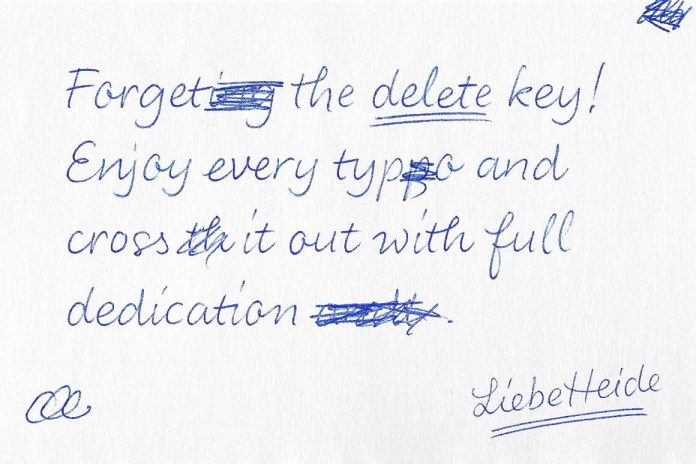 Forget the delete key!
Enjoy every typo and
cross it out with full
dedication .
LiebeHeide